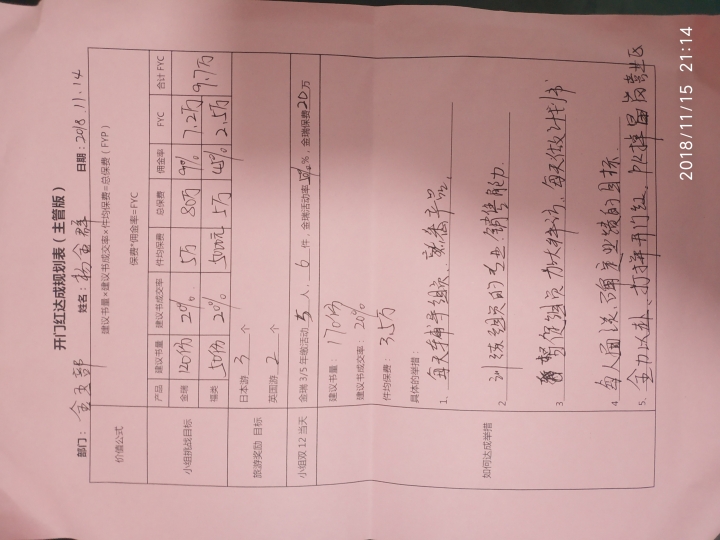 开门红达成规划表（主管版）
部门： 金玉部 姓名：杨金群 日期：2018.11.14
价值公式 建议书量×建议书成交率×件均保费=总保费（FYP）
保费*佣金率=FYC
产品 建议书量 建议书成交率 件均保费 总保费 佣金率 FYC 合计FYC
小组挑战目标 金瑞 120份 20% 5万 80万 9% 7.2万 9.7万
福类 50份 20% 5000元 5万 45% 2.5万
旅游奖励 目标 日本游 3 个
英国游 2 个
小组双12当天 金瑞3/5年缴活动 5 人， 6 件，金瑞活动率 %，金瑞保费 20 万
如何达成举措 建议书量： 170份
建议书成交率： 20%
件均保费： 3.5万
具体的举措：
1、每天辅导组员、熟悉产品。
2、训练组员的专业、销售能力
3、督促组员加大拜访、每天做计划书
4、每人面谈、确定业绩的目标
5、全力以赴、打拼开门红、
2018/11/15 21:14